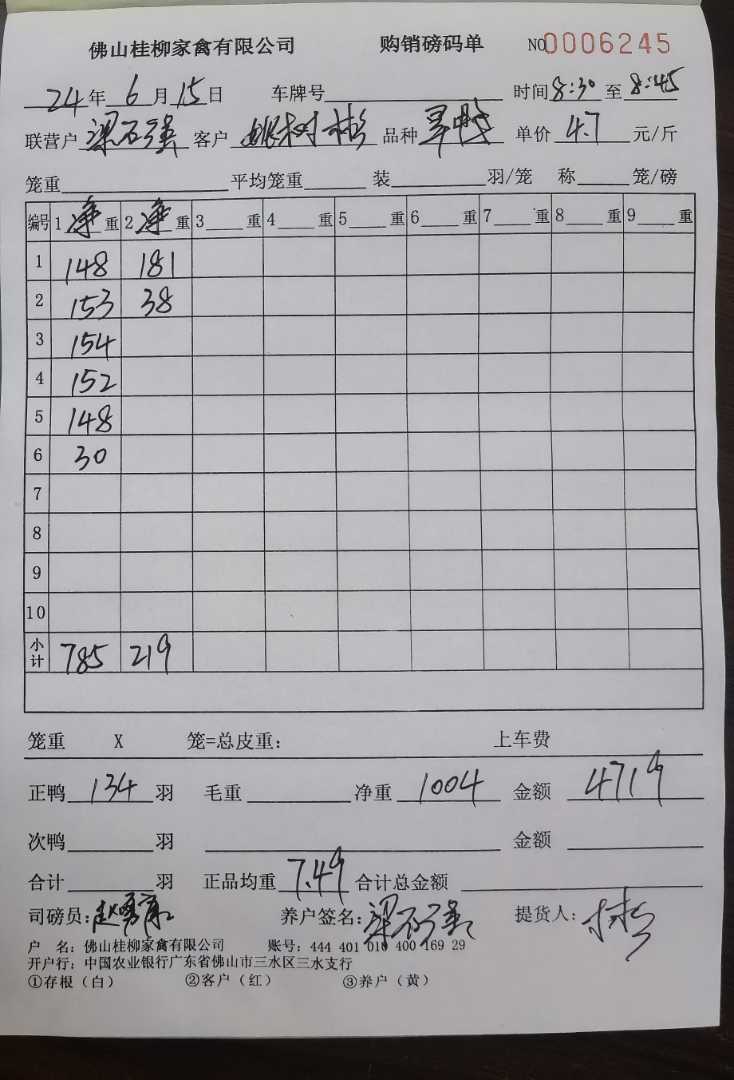 佛山桂柳家禽有限公司 购销磅码单 NO0006245
24年6月15日 车牌号 时间8:30至8:45
联营户梁石强 客户姚树彬 品种旱鸭 单价4.7元/斤
笼重 平均笼重 装 羽/笼 称 笼/磅
编号 1净重 2净重 3 重 4 重 5 重 6 重 7 重 8 重 9 重
1 148 181
2 153 38
3 154
4 152
5 148
6 30
7
8
9
10
小计 785 219
笼重 X 笼=总皮重: 上车费
正鸭134羽 毛重 净重1004 金额4719
次鸭 羽 金额
合计 羽 正品均重7.49 合计总金额
司磅员: 养户签名:梁石强 提货人:
户 名: 佛山桂柳家禽有限公司 账号: 444 401 010 400 169 29
开户行: 中国农业银行广东省佛山市三水区三水支行
①存根(白) ②客户(红) ③养户(黄)